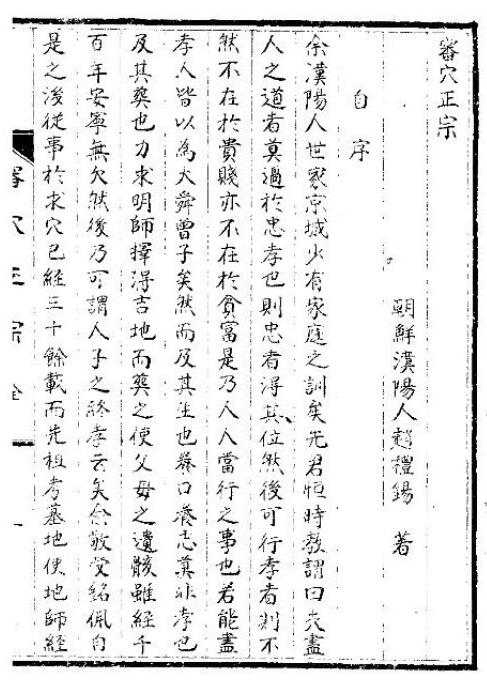 審穴正宗
朝鮮漢陽人趙禮錫 著
自序
余漢陽人世家京城少有家庭之訓矣先君恒時教謂曰夫盡
人之道者莫過於忠孝也則忠者得其位然後可行孝者則不
然不在於貴賤亦不在於貧富是乃人人當行之事也若能盡
孝人皆以為大舜曾子矣然而及其生也養口養志莫非孝也
及其葬也力求明師擇得吉地而葬之使父母之遺骸雖經千
百年安寧無欠然後乃可謂人子之終孝云矣余敬受銘佩自
是之後從事於求穴已經三十餘載而先祖考墓地使地師經
審穴正宗 全
一